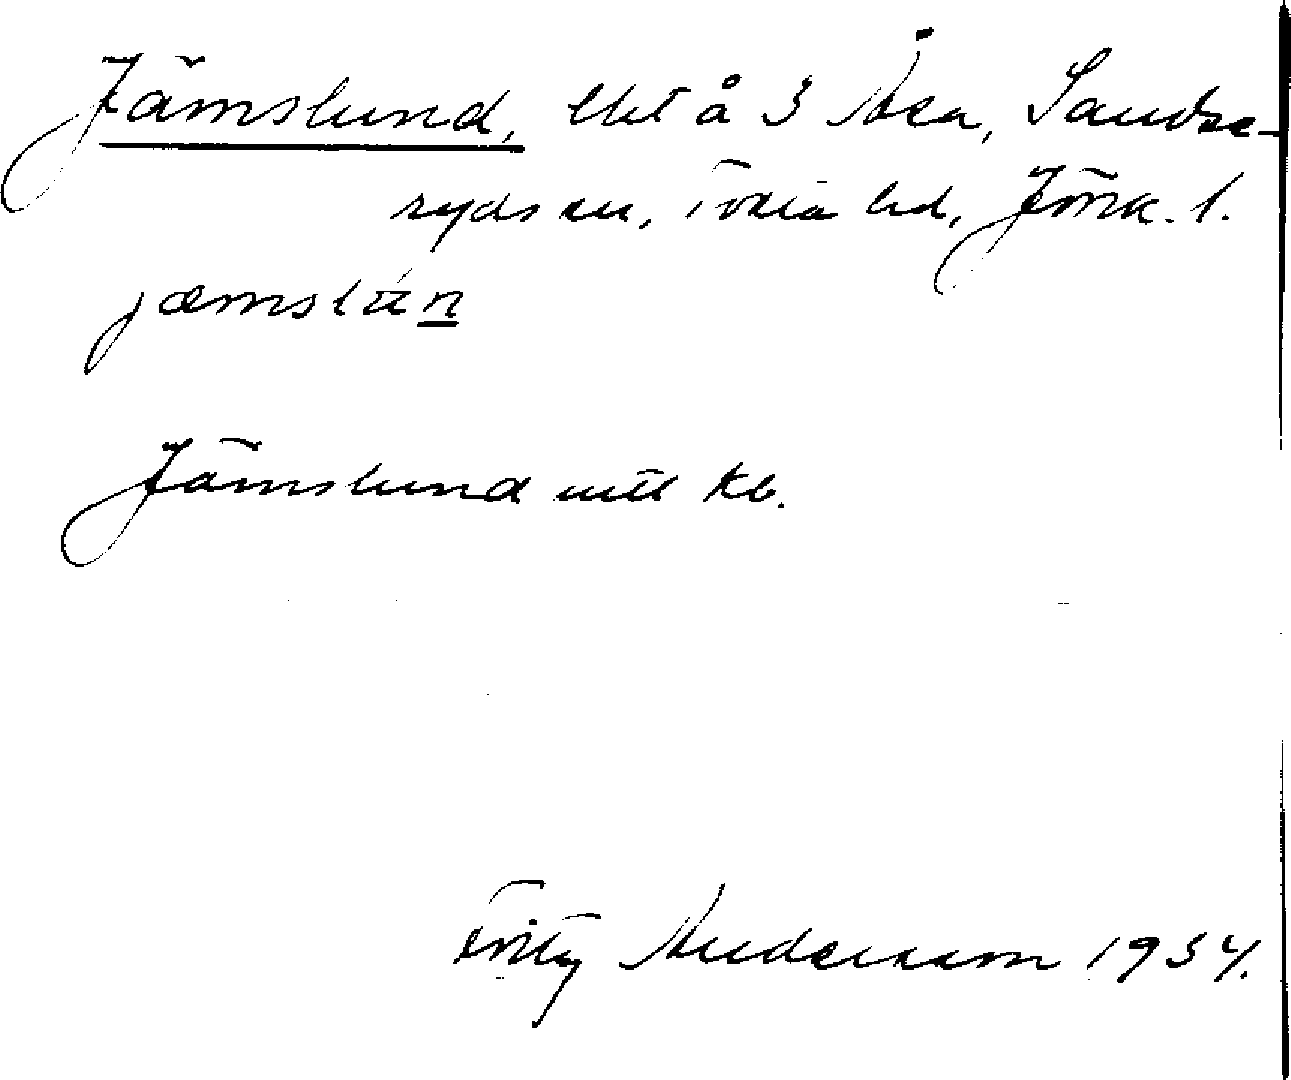 Jämslund, lht å 3 Åsa, Sandse-
ryds sn, Tveta hd, Jönk. l.
jæmslun
Jämslund enl kb.
Fritz Andersson 1934.